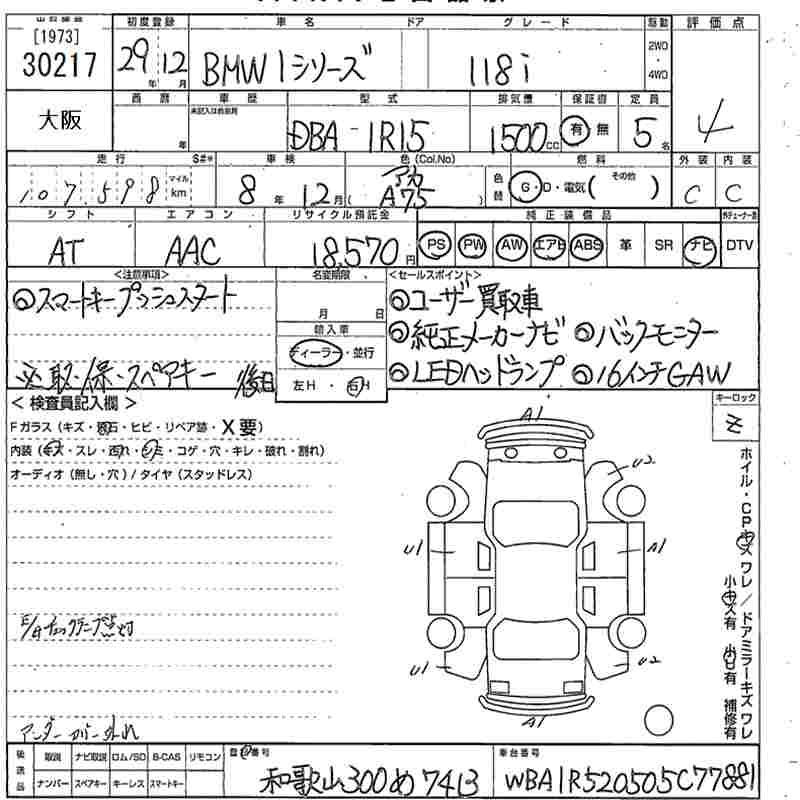 [1973]
30217
大阪
初度登録 車名 ドア グレード 駆動 評価点
29年 12月 BMW 1シリーズ 118i 2WD・4WD 4
西暦 車歴 型式 排気量 保証書 定員
年 未記入は自家用 DBA-1R15 1500cc 有・無 5名
走行 S#※ 車検 色(Col.No) 色替 燃料 外装 内装
107,598 マイル km 8年 12月( アカ A75 ) G・D・電気( その他 ) C C
シフト エアコン リサイクル預託金 純正装備品
AT AAC 18,570円 PS PW AW エアB ABS 革 SR ナビ DTV
<注意事項> 名変期限 <セールスポイント>
スマートキープッシュスタート 月 日 ユーザー買取車
輸入車 純正メーカーナビ バックモニター
ディーラー・並行 LEDヘッドランプ 16インチGAW
取・保・スペアキー 後日 左H・右H
キーロック
Z
<検査員記入欄>
Fガラス(キズ・飛石・ヒビ・リペア跡・X要)
内装(キズ・スレ・汚れ・シミ・コゲ・穴・キレ・破れ・割れ)
オーディオ(無し・穴)/タイヤ(スタッドレス)
A1
U2
U1 A1
U1 U2
A1
ホイル・CPキズワレ/ドアミラーキズワレ
小キズ有 小凹有 補修有
E/Gチェックランプ点灯
アンダーカバー外れ
後送品 取説 ナビ取説 ロム/SD B-CAS リモコン 登録番号 車台番号
ナンバー スペアキー キーレス スマートキー 和歌山300め7413 WBA1R520505C77881